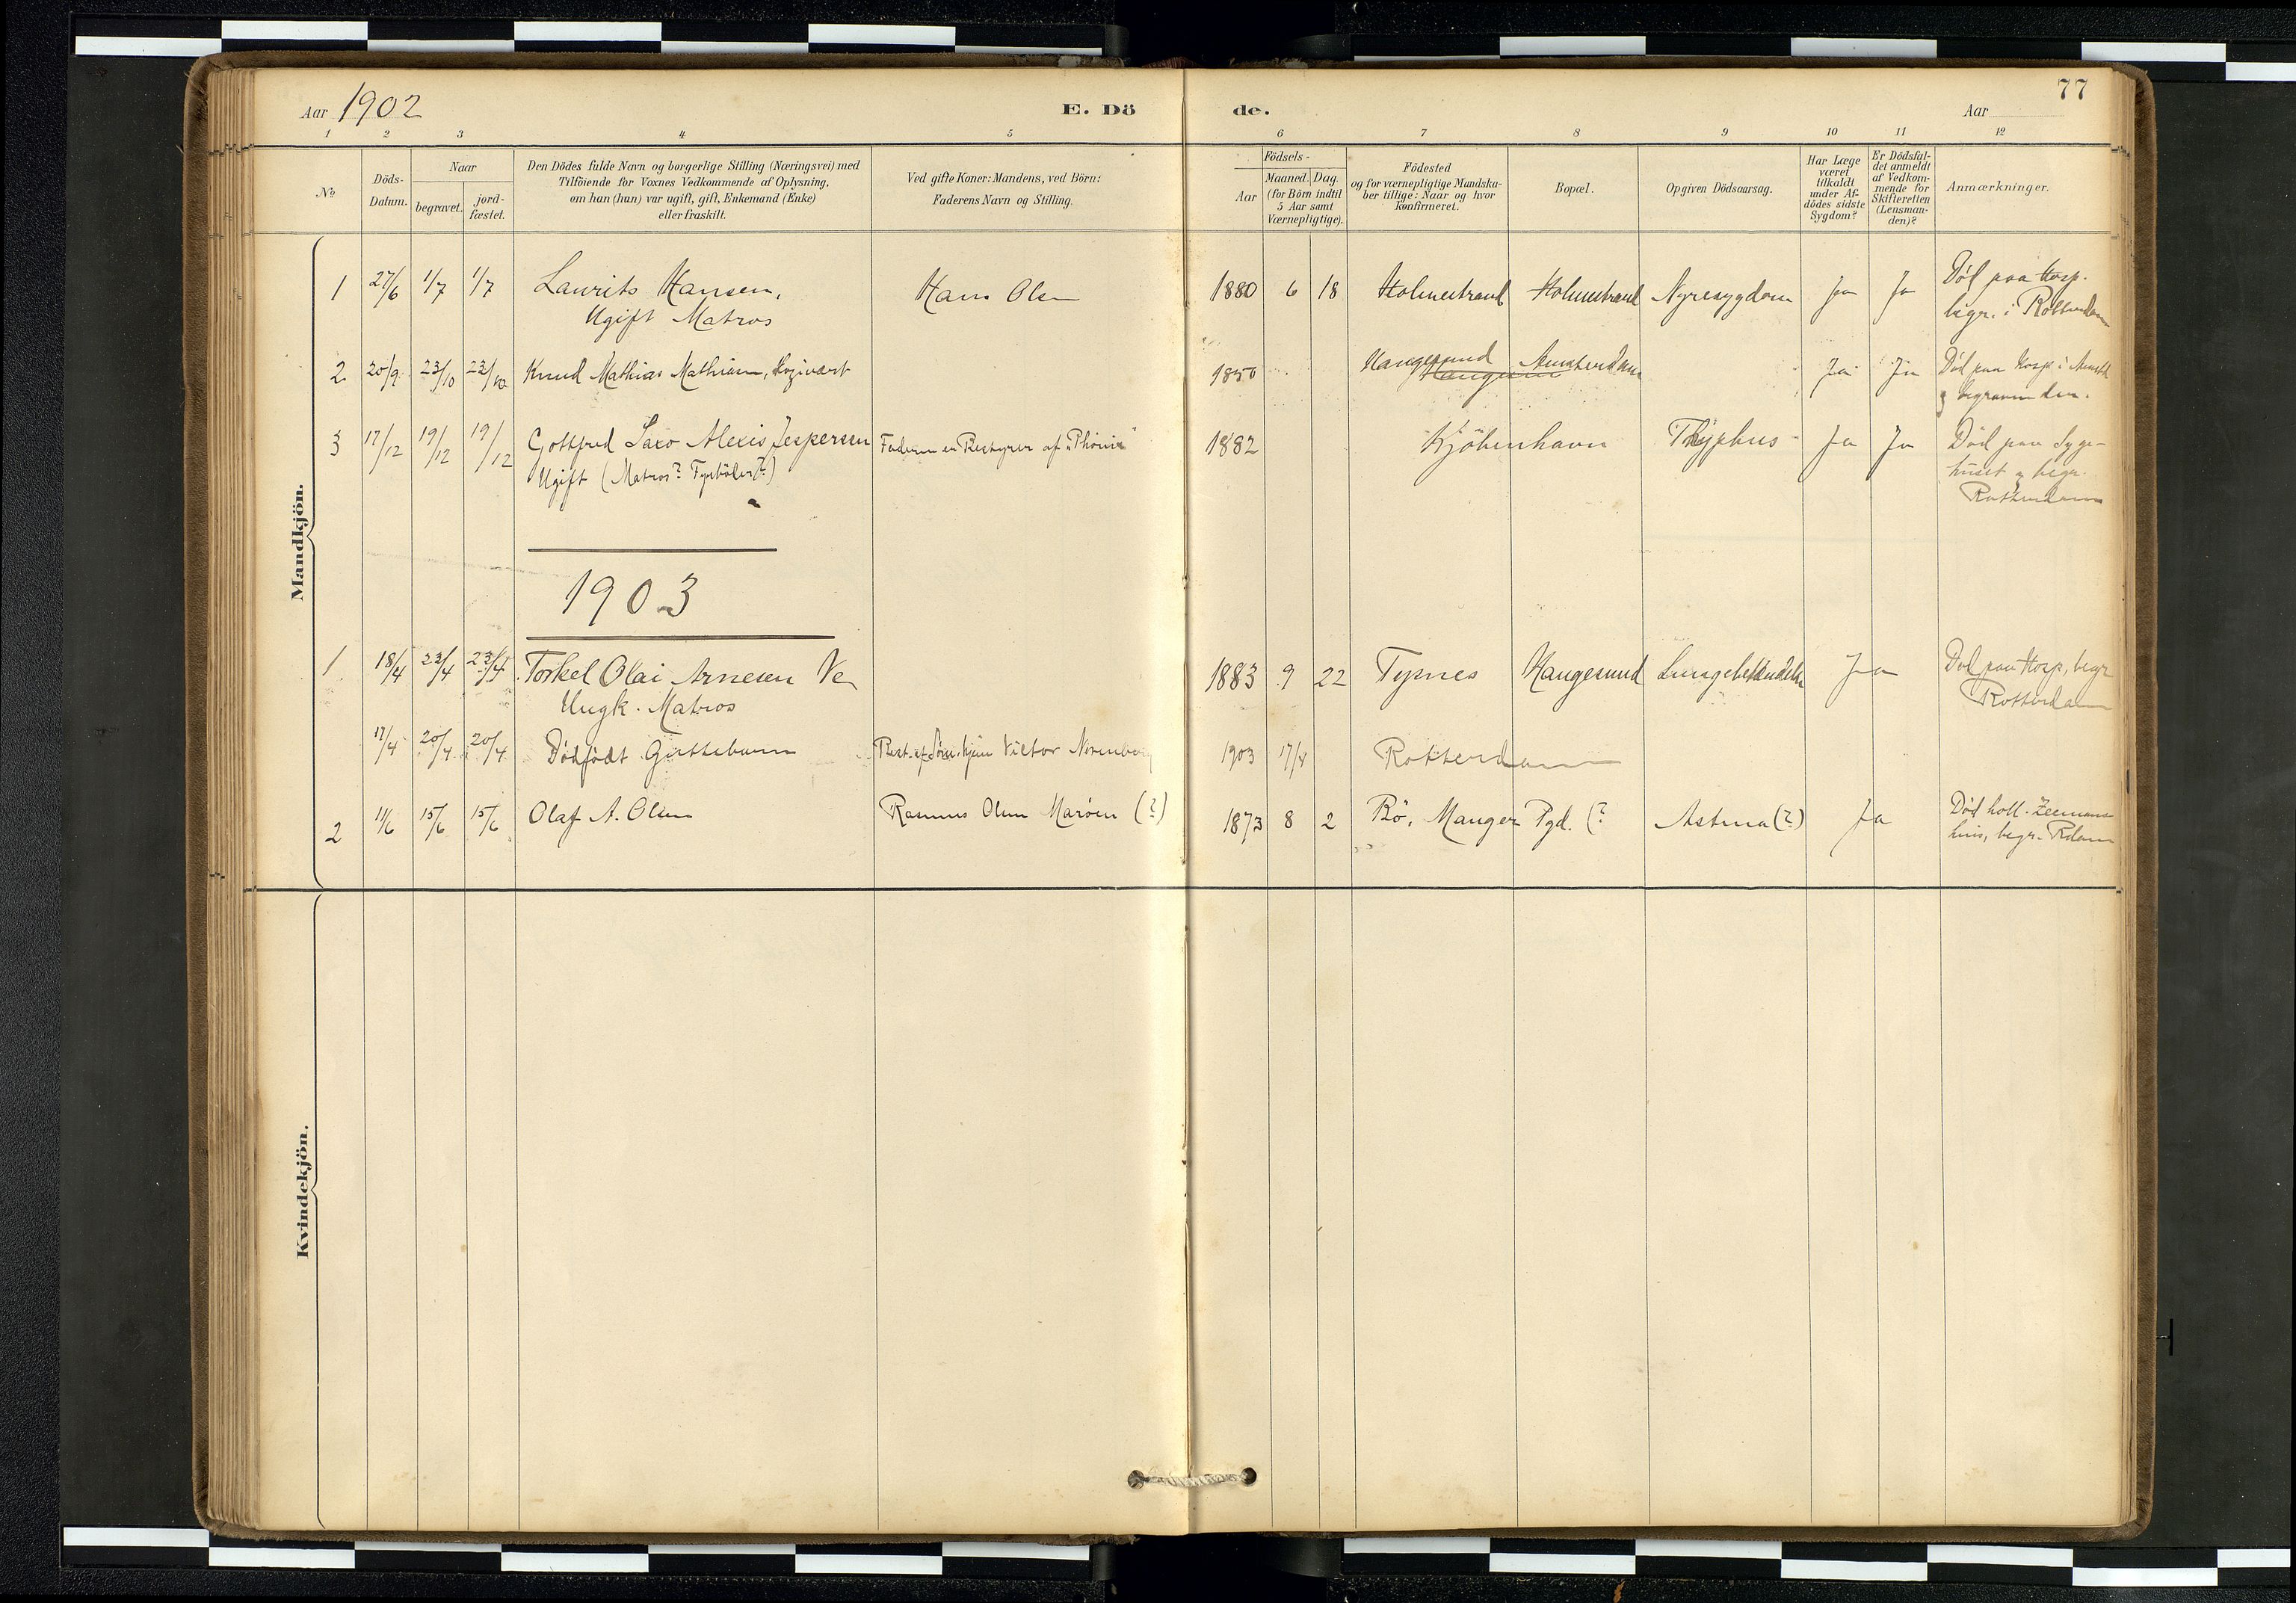 77
Aar 1902
E. Dö
de.
Aar
1 2 3 4 5 6 7 8 9 10 11 12
No
Döds-
Datum.
Naar
begravet.
jord-
fæstet.
Den Dödes fulde Navn og borgerlige Stilling (Næringsvei) med
Tilföiende for Voxnes Vedkommende af Oplysning,
om han (hun) var ugift, gift, Enkemand (Enke)
eller fraskilt.
Ved gifte Koner: Mandens, ved Börn:
Faderens Navn og Stilling.
Födsels-
Aar
Maaned. Dag.
(for Börn indtil
5 Aar samt
Værnepligtige).
Födested
og for værnepligtige Mandska-
ber tillige: Naar og hvor
konfirmeret.
Bopæl.
Opgiven Dödsaarsag.
Har Læge
været
tilkaldt
under Af-
dödes sidste
Sygdom?
Er Dödsfal-
det anmeldt
af Vedkom-
mende for
Skifteretten
(Lensman-
den)?
Anmærkninger.
Mandkjön.
1 27/6 1/7 1/7 Laurits Hansen, Hans Olsen 1880 6 18 Holmestrand Holmestrand Nyresygdom Ja Ja Död paa Hosp.
Ugift Matros begr. i Rotterdam
2 20/9 23/10 23/10 Knud Mathias Mathiasen, Logivært 1850 Haugesund Amsterdam Ja Ja Död paa Hosp i Amstd
og begraven der.
3 17/12 19/12 19/12 Gottfred Saxo Alexis Jespersen Faderen er Bestyrer af "Phönix" 1882 Kjöbenhavn Thyphus Ja Ja Död paa Syge-
Ugift (Matros? Fyrböder?) huset og begr.
Rotterdam
1903
1 18/4 23/4 23/4 Torkel Olai Arnesen Ve 1883 9 22 Tysnes Haugesund Ja Död paa Hosp, begr
Ungk. Matros Rotterdam
17/4 20/4 20/4 Dödfödt Guttebarn Best. af Viktor 1903 17/4 Rotterdam
2 11/6 15/6 15/6 Olaf A. Olsen Rasmus Olsen Maröen (?) 1873 8 2 Bö, Manger Pgd. (? Astma (?) Ja Död holl. Zeemans
huis, begr. Rdam
Kvindekjön.